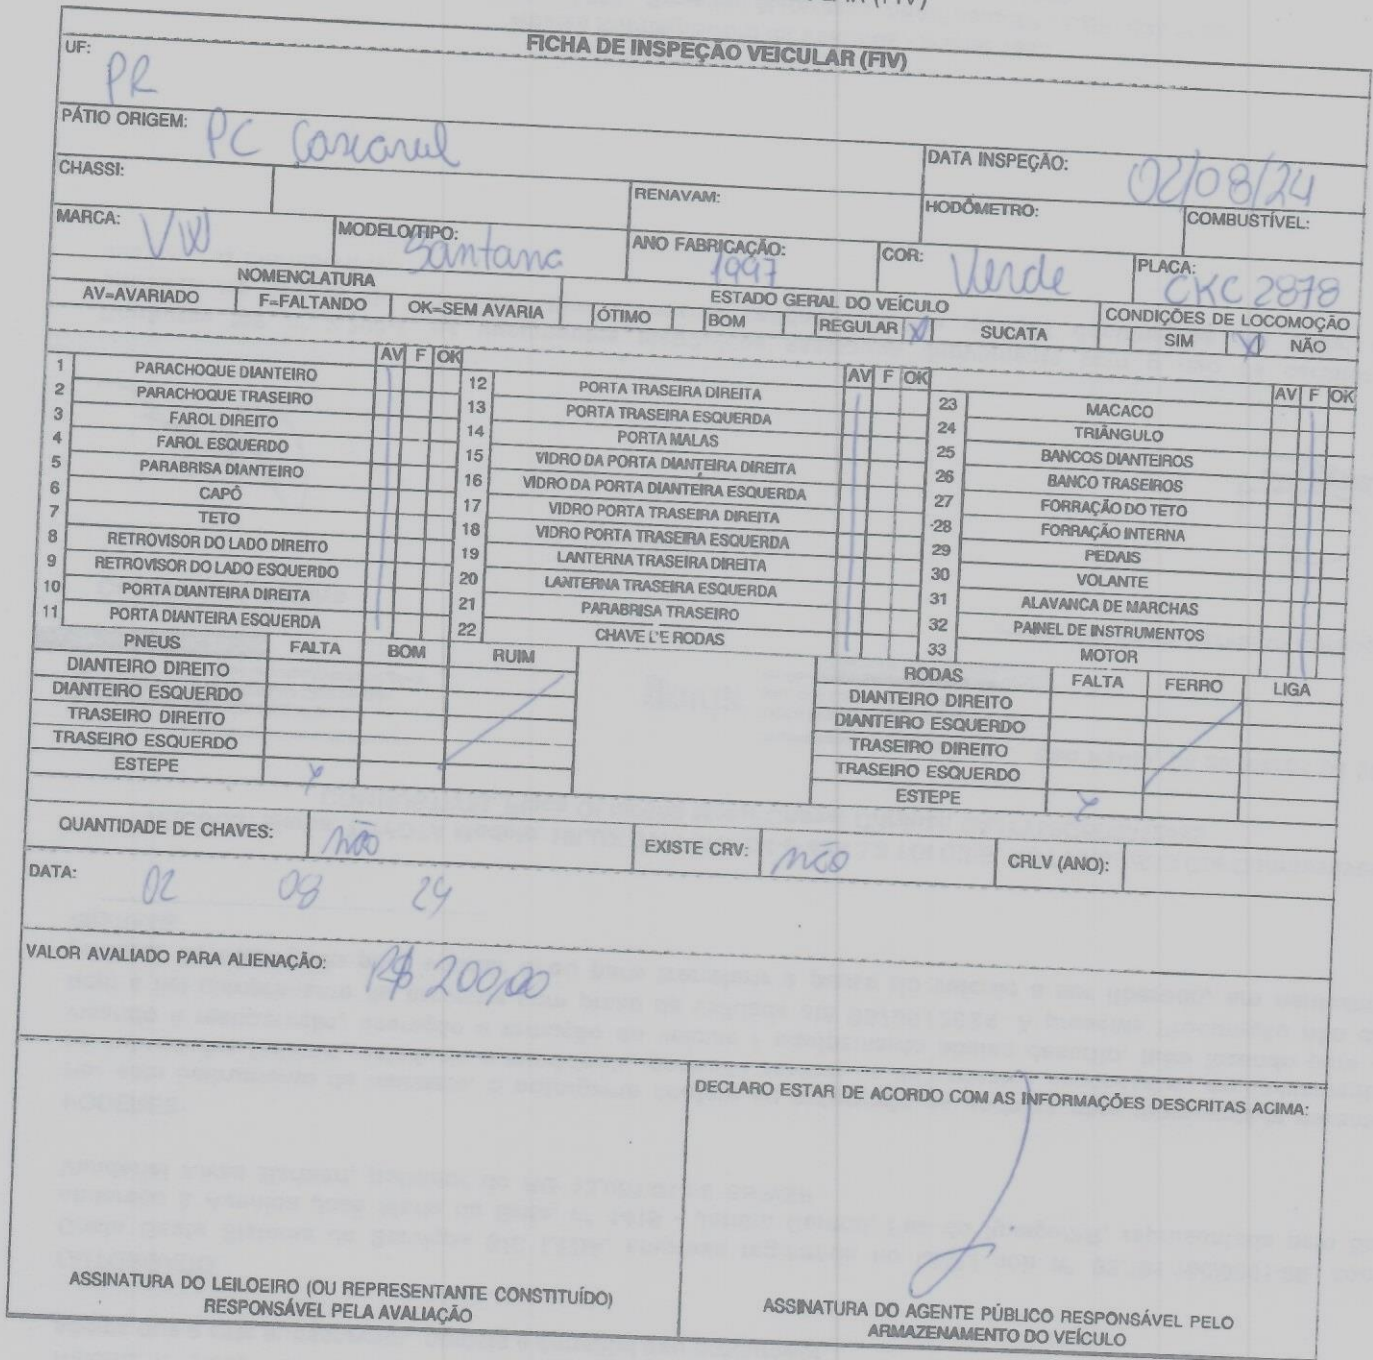 FICHA DE INSPEÇÃO VEICULAR (FIV)
UF: PR
PÁTIO ORIGEM: PC Cascavel
DATA INSPEÇÃO: 02/08/24
CHASSI:
RENAVAM:
HODÔMETRO:
COMBUSTÍVEL:
MARCA: VW
MODELO/TIPO: Santana
ANO FABRICAÇÃO: 1997
COR: Verde
PLACA: CKC 2878
NOMENCLATURA
ESTADO GERAL DO VEÍCULO
CONDIÇÕES DE LOCOMOÇÃO
AV=AVARIADO F=FALTANDO OK=SEM AVARIA ÓTIMO BOM REGULAR X SUCATA SIM X NÃO
AV F OK
1 PARACHOQUE DIANTEIRO
2 PARACHOQUE TRASEIRO
3 FAROL DIREITO
4 FAROL ESQUERDO
5 PARABRISA DIANTEIRO
6 CAPÔ
7 TETO
8 RETROVISOR DO LADO DIREITO
9 RETROVISOR DO LADO ESQUERDO
10 PORTA DIANTEIRA DIREITA
11 PORTA DIANTEIRA ESQUERDA
AV F OK
12 PORTA TRASEIRA DIREITA
13 PORTA TRASEIRA ESQUERDA
14 PORTA MALAS
15 VIDRO DA PORTA DIANTEIRA DIREITA
16 VIDRO DA PORTA DIANTEIRA ESQUERDA
17 VIDRO PORTA TRASEIRA DIREITA
18 VIDRO PORTA TRASEIRA ESQUERDA
19 LANTERNA TRASEIRA DIREITA
20 LANTERNA TRASEIRA ESQUERDA
21 PARABRISA TRASEIRO
22 CHAVE DE RODAS
AV F OK
23 MACACO
24 TRIÂNGULO
25 BANCOS DIANTEIROS
26 BANCO TRASEIROS
27 FORRAÇÃO DO TETO
28 FORRAÇÃO INTERNA
29 PEDAIS
30 VOLANTE
31 ALAVANCA DE MARCHAS
32 PAINEL DE INSTRUMENTOS
33 MOTOR
PNEUS FALTA BOM RUIM
DIANTEIRO DIREITO
DIANTEIRO ESQUERDO
TRASEIRO DIREITO
TRASEIRO ESQUERDO
ESTEPE X
RODAS FALTA FERRO LIGA
DIANTEIRO DIREITO
DIANTEIRO ESQUERDO
TRASEIRO DIREITO
TRASEIRO ESQUERDO
ESTEPE X
QUANTIDADE DE CHAVES: não EXISTE CRV: não CRLV (ANO):
DATA: 02 08 24
VALOR AVALIADO PARA ALIENAÇÃO: R$ 200,00
DECLARO ESTAR DE ACORDO COM AS INFORMAÇÕES DESCRITAS ACIMA:
ASSINATURA DO LEILOEIRO (OU REPRESENTANTE CONSTITUÍDO)
RESPONSÁVEL PELA AVALIAÇÃO
ASSINATURA DO AGENTE PÚBLICO RESPONSÁVEL PELO
ARMAZENAMENTO DO VEÍCULO